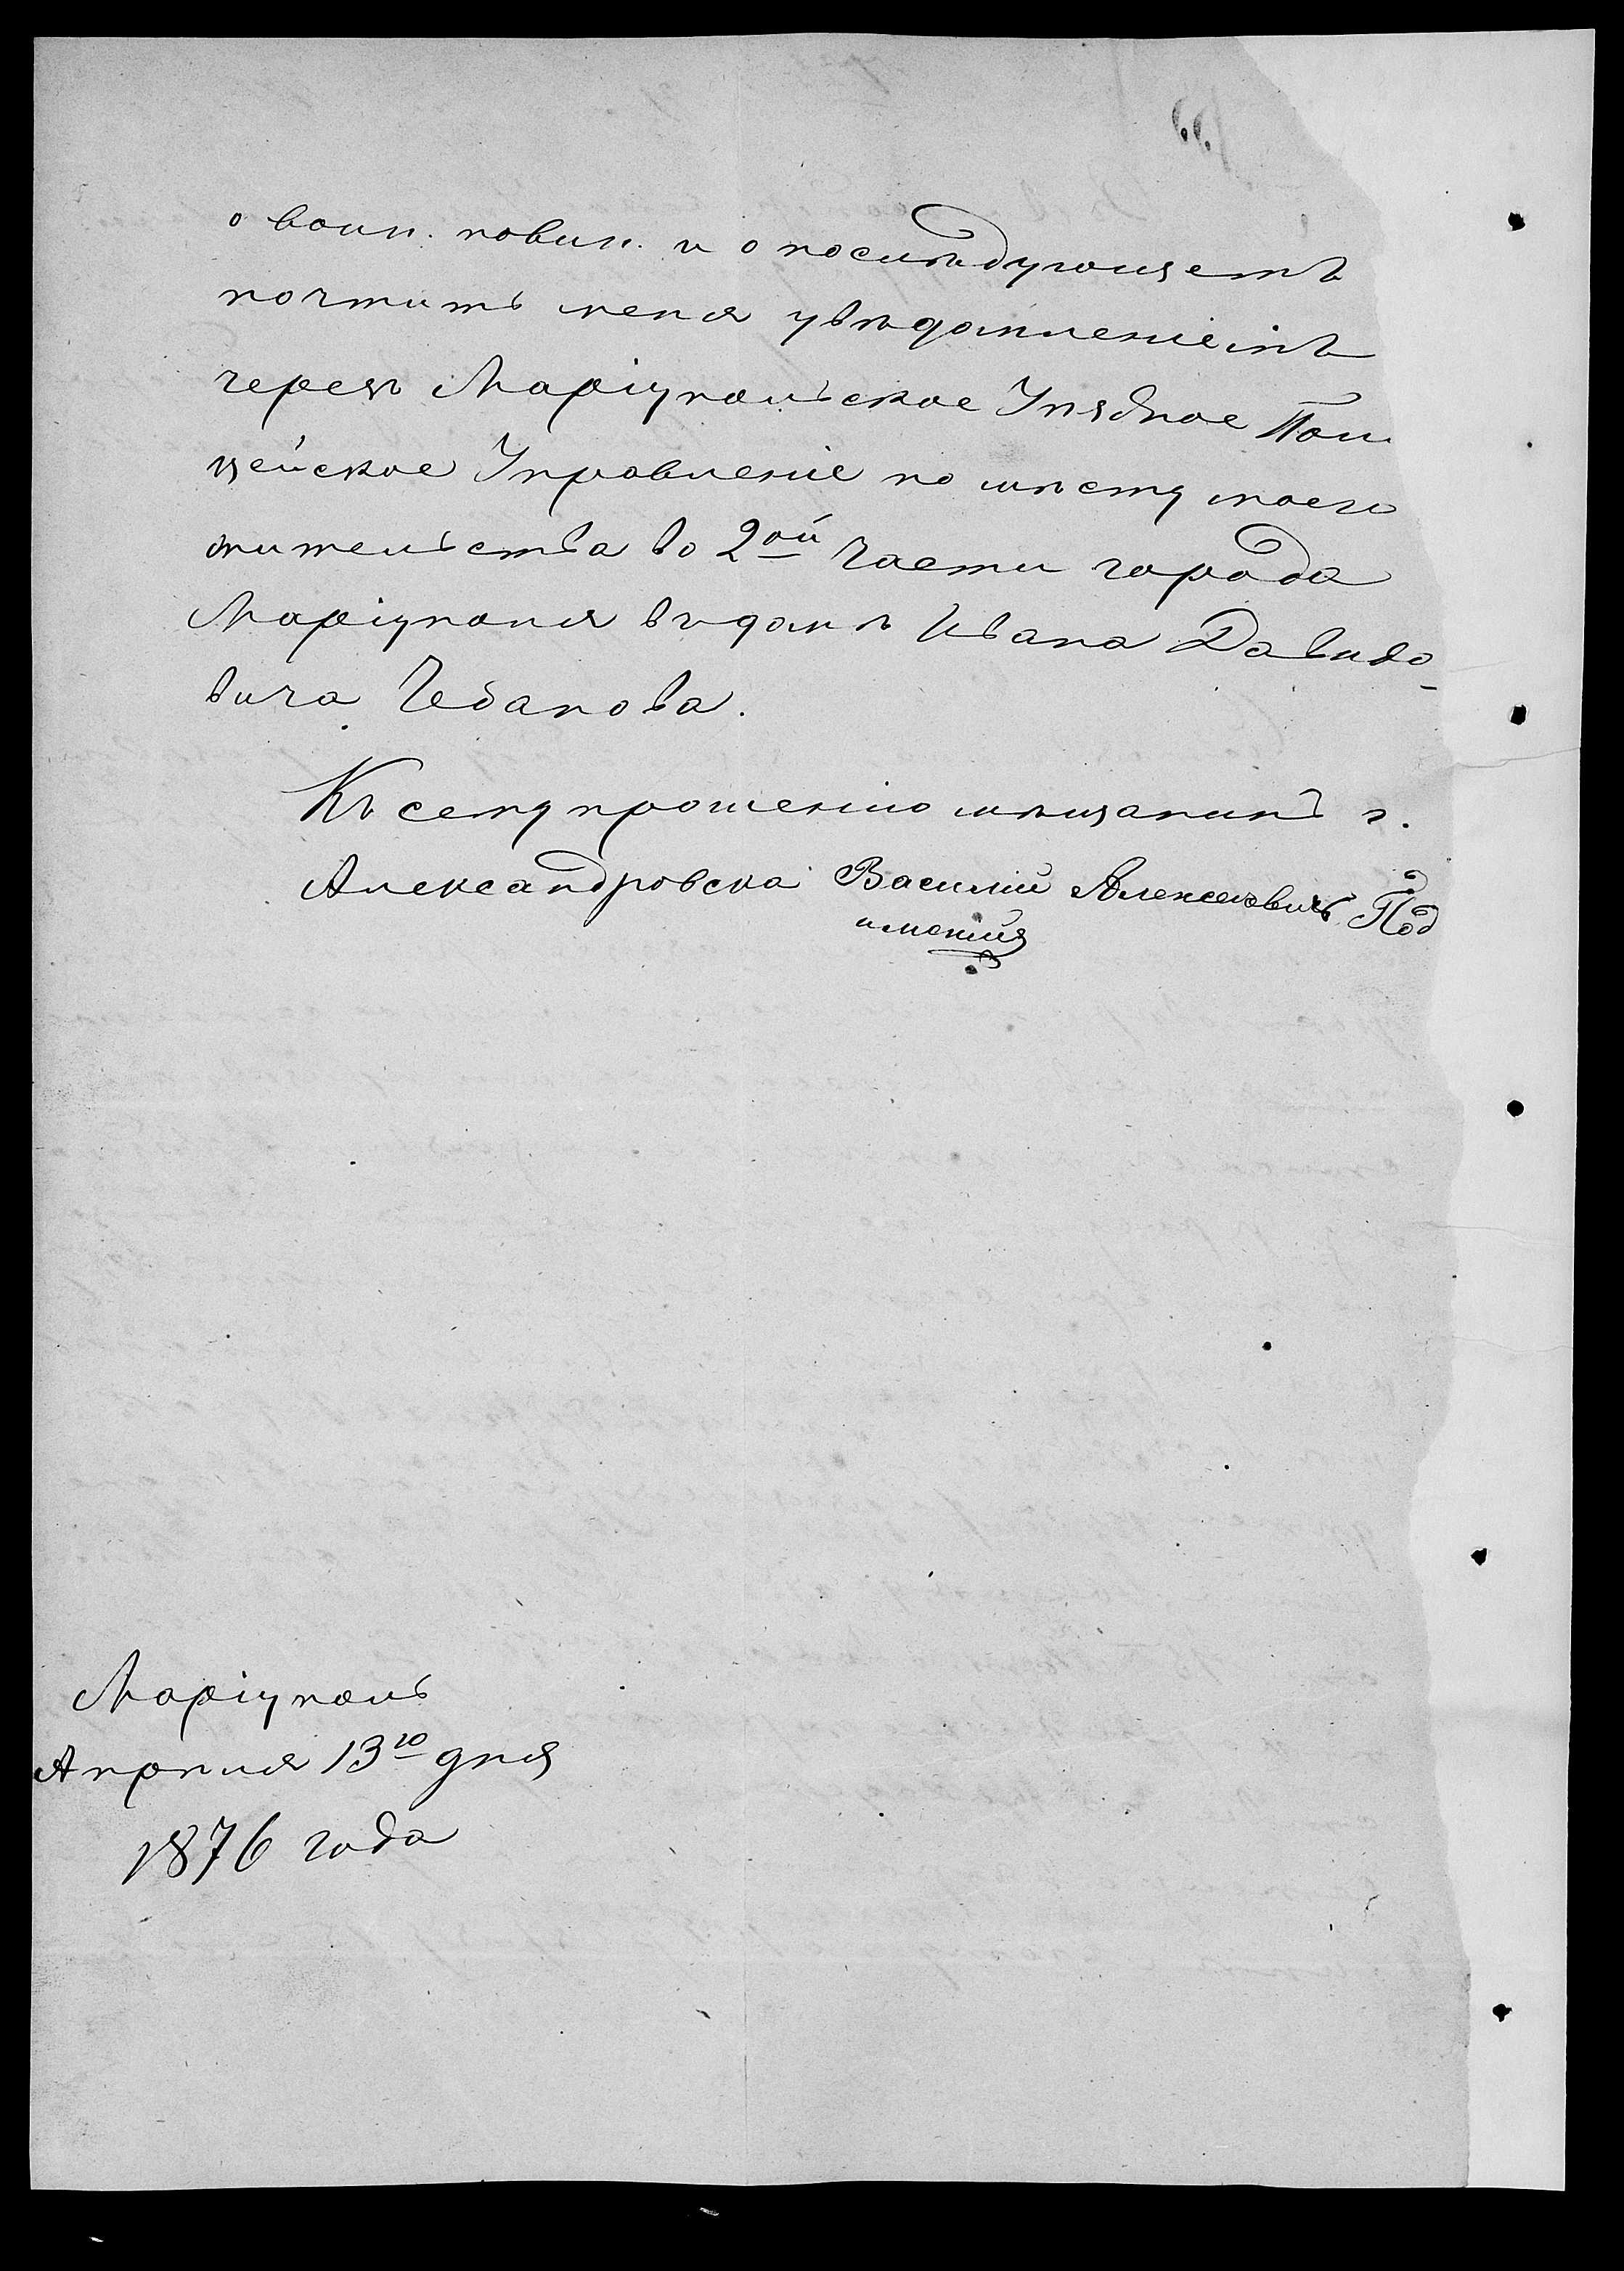 о воин. повин. и о послѣдующемъ
почтить меня увѣдомленіемъ
черезъ Маріупольское Уѣздное Поли
цейское Управленіе по мѣсту моего
жительства во 2ой части города
Маріуполя въ домѣ Ивана Давидо-
вича Чебанова.
Къ сему прошенію мѣщанинъ г.
Александровска Василий Алексеевичъ
Маріуполь
Апрѣля 13го дня
1876 года